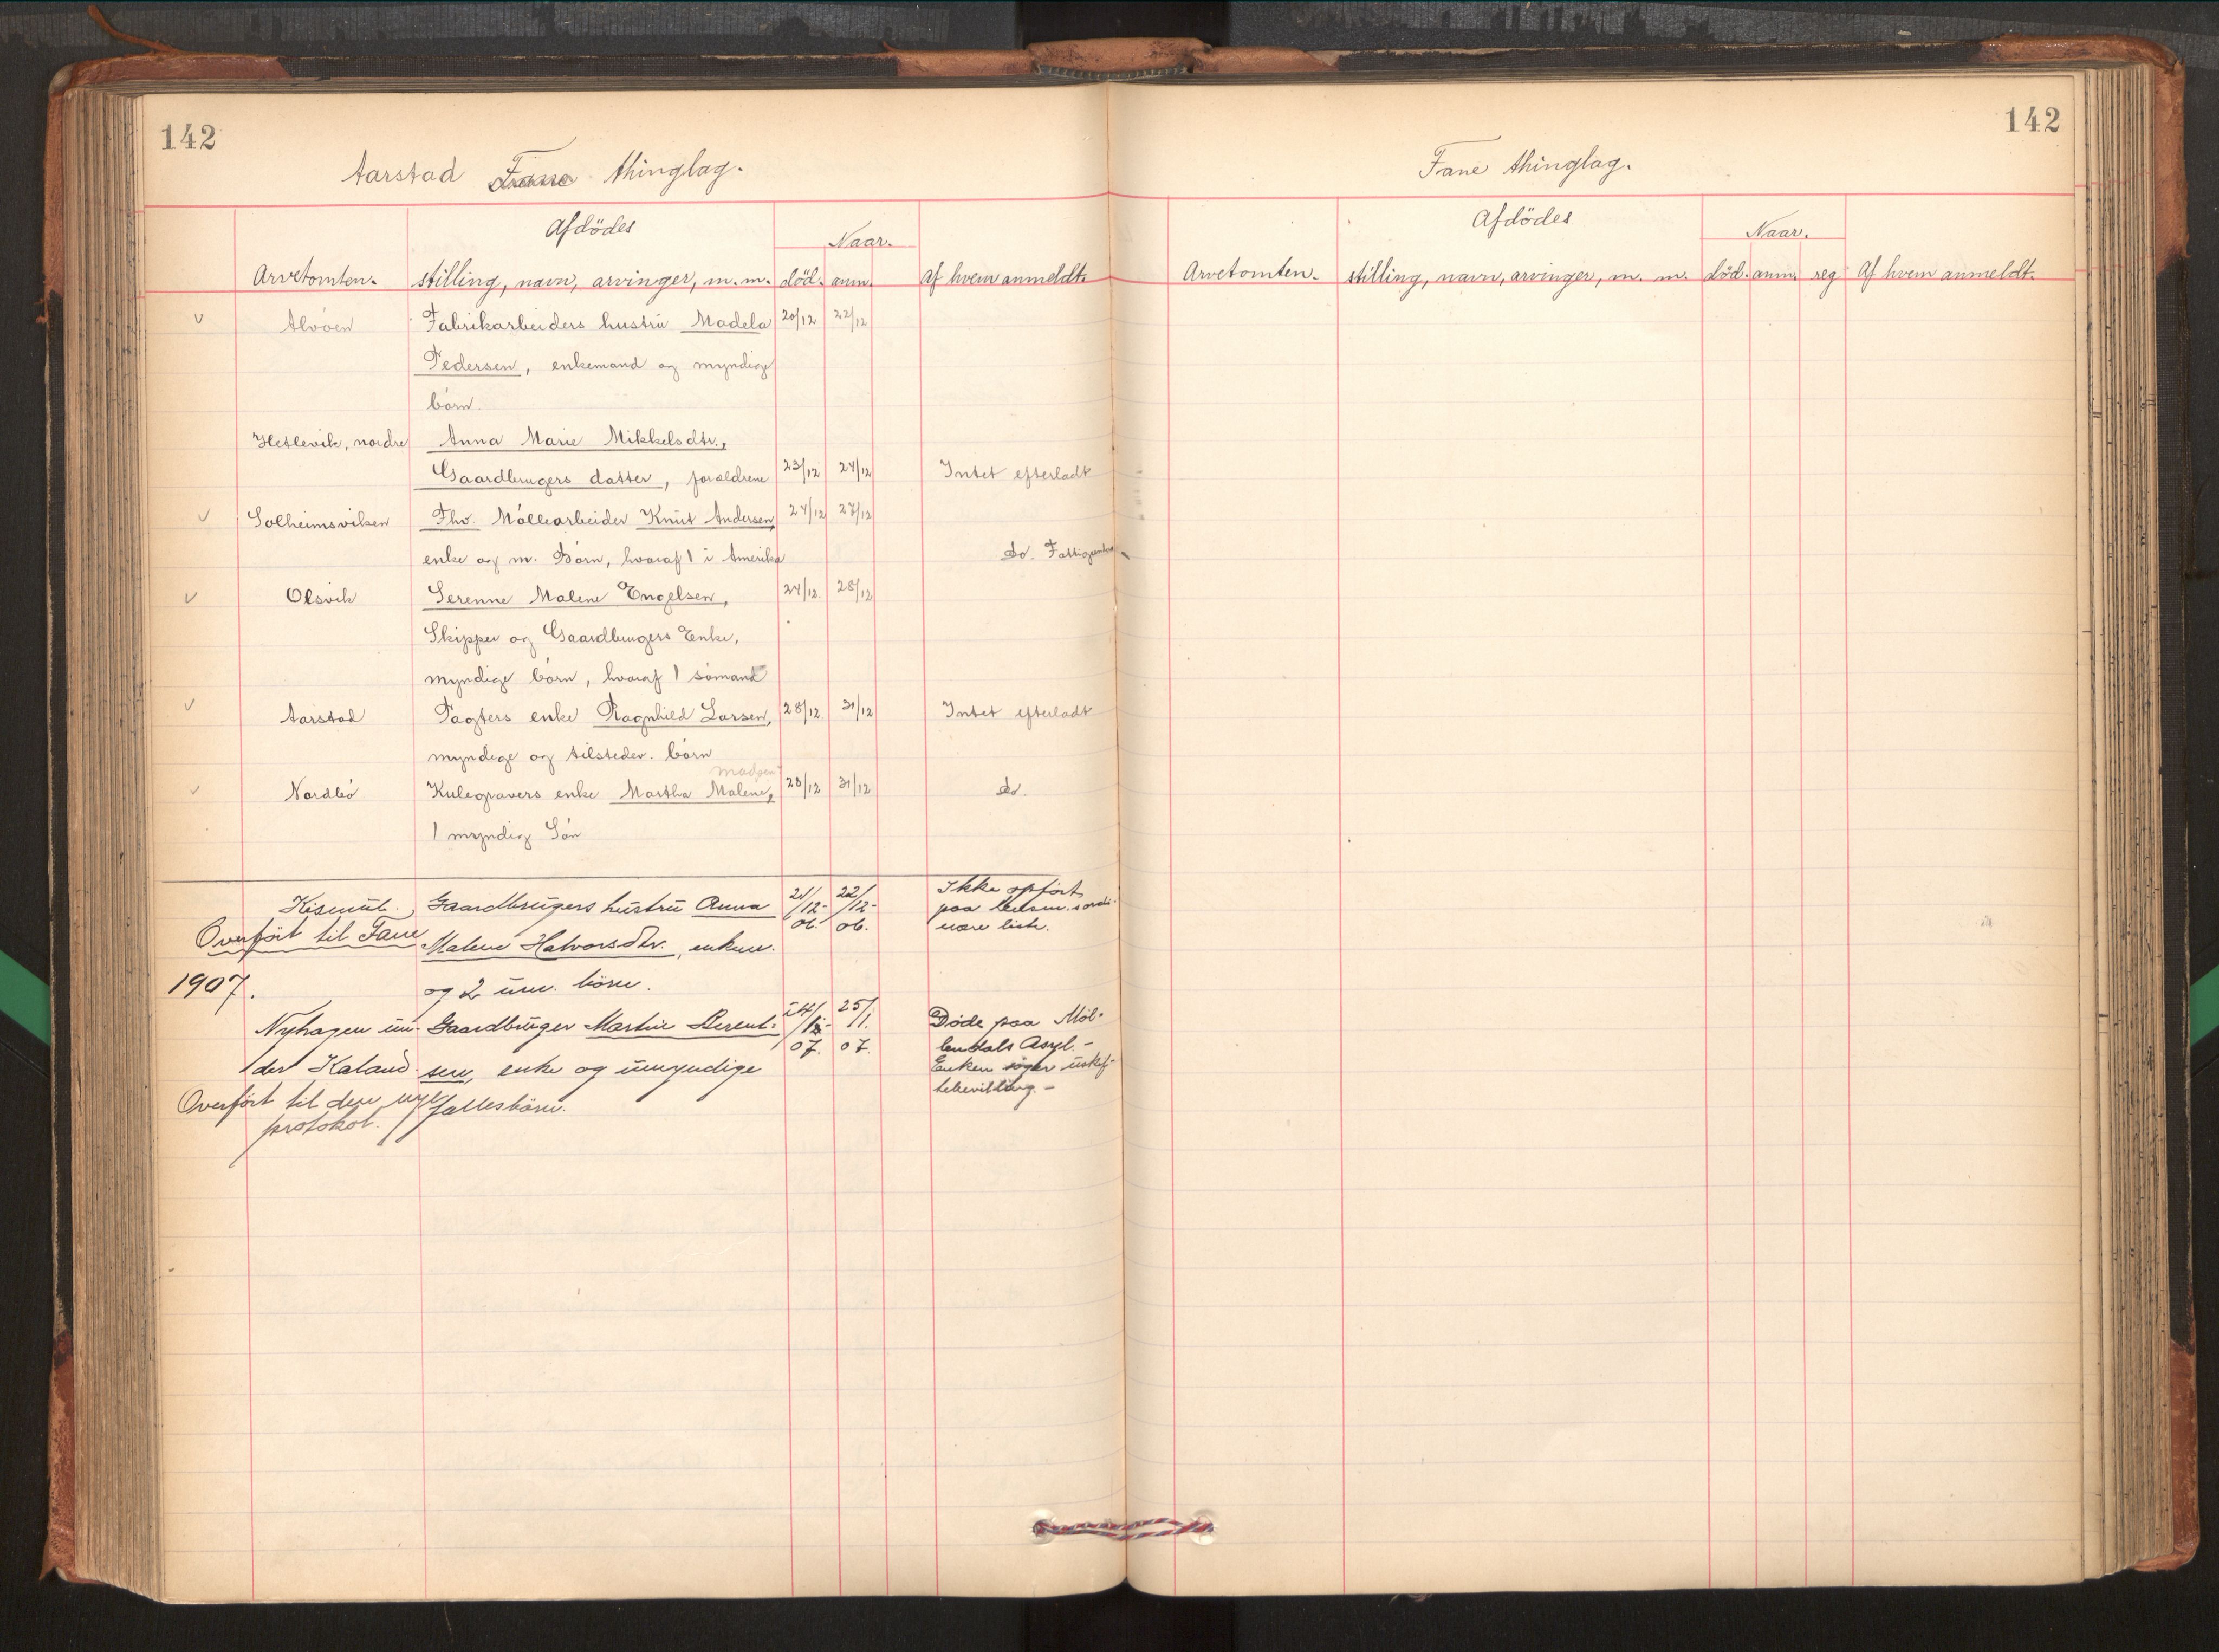 142
Aarstad Fane thinglag.
Afdödes
Naar.
Arvetomten. stilling, navn, arvinger, m. m. död. anm. Af hvem anmeldt.
v Alvöen Fabrikarbeiders hustru Madela 20/12 22/12
Pedersen, enkemand og myndige
börn.
Hetlevik, nordre Anna Marie Mikkelsdtr.,
Gaardbrugers datter, forældrene 23/12 24/12 Intet efterladt
v Solheimsviken Fhv. Möllearbeider Knut Andersen, 24/12 27/12
enke og m. Börn, hvoraf 1 i Amerika Do.
v Olsvik Serenne Malene Engelsen, 24/12 28/12
Skipper og Gaardbrugers Enke,
myndige börn, hvoraf 1 sömand
v Aarstad Pagters enke Ragnhild Larsen, 28/12 31/12 Intet efterladt
myndige og tilstedev. börn
madsen
v Nordbö Kulegravers enke Martha Malene, 28/12 31/12 Do.
1 myndig Sön
Kismul. Gaardbrugers hustru Anna 21/12-06. 22/12-06. Ikke opfört
paa lensm. ordi-
nære liste.
Overfört til Fane Malene Halvorsdtr., enkem.
1907. og 2 um. börn.
Nyhagen un- Gaardbruger Martin Berent- 24/1-07. 25/1.07. Döde paa Möl-
lendals Asyl. -
der Kaland. sen, enke og umyndige Enken söger uskif-
tebevilling. -
Overfört til den nye fællesbörn.
protokol.
142
Fane thinglag.
Afdödes
Naar.
Arvetomten. stilling, navn, arvinger, m. m. död. anm. reg. Af hvem anmeldt.